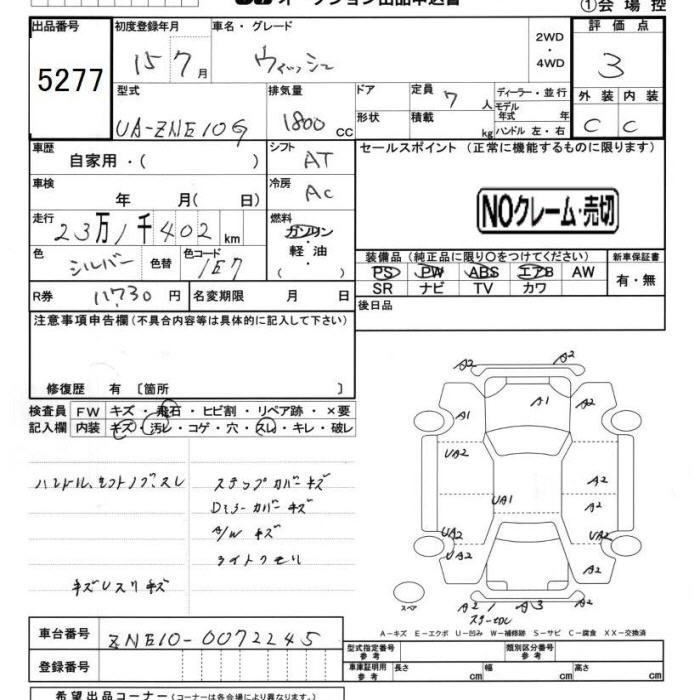 オークション出品申込書
①会場控
出品番号
5277
初度登録年月
15 7月
車名・グレード
ウィッシュ
2WD
・
4WD
評価点
3
型式
UA-ZNE10G
排気量
1800 CC
ドア
形状
定員 7 人
積載 kg
ディーラー・並行
モデル
年式 年
ハンドル 左・右
外装 内装
C C
車歴
自家用・( )
シフト
AT
セールスポイント (正常に機能するものに限ります)
車検
年 月( 日)
冷房
AC
NOクレーム・売切
走行
23万1千402 km
燃料
ガソリン
軽油
・( )
色
シルバー
色替
色コード
1E7
装備品 (純正品に限り○をつけてください)
PS PW ABS エアB AW
SR ナビ TV カワ
新車保証書
有・無
R券 11730 円
名変期限 月 日
後日品
注意事項申告欄 (不具合内容等は具体的に記入して下さい)
修復歴 有 〔箇所 〕
検査員
記入欄
FW キズ・飛石・ヒビ割・リペア跡・×要
内装 キズ・汚レ・コゲ・穴・スレ・キレ・破レ
ハンドル、シフトノブ、スレ
ステップカバーキズ
Dミラーカバーキズ
A/W キズ
ライトクモリ
キズUスリキズ
A2
A2
A1
A2
A1
UA2
A2
UA1
A2
UA2
UA2
UA2
A2
スペア
A2
A2
A3
A2
A－キズ E－エクボ U－凹み W－補修跡 S－サビ C－腐食 XX－交換済
車台番号
ZNE10-0072245
登録番号
型式指定番号
参考
類別区分番号
参考
車庫証明用
参考
長さ cm
幅 cm
高さ cm
希望出品コーナー (コーナーは各会場により異なります)